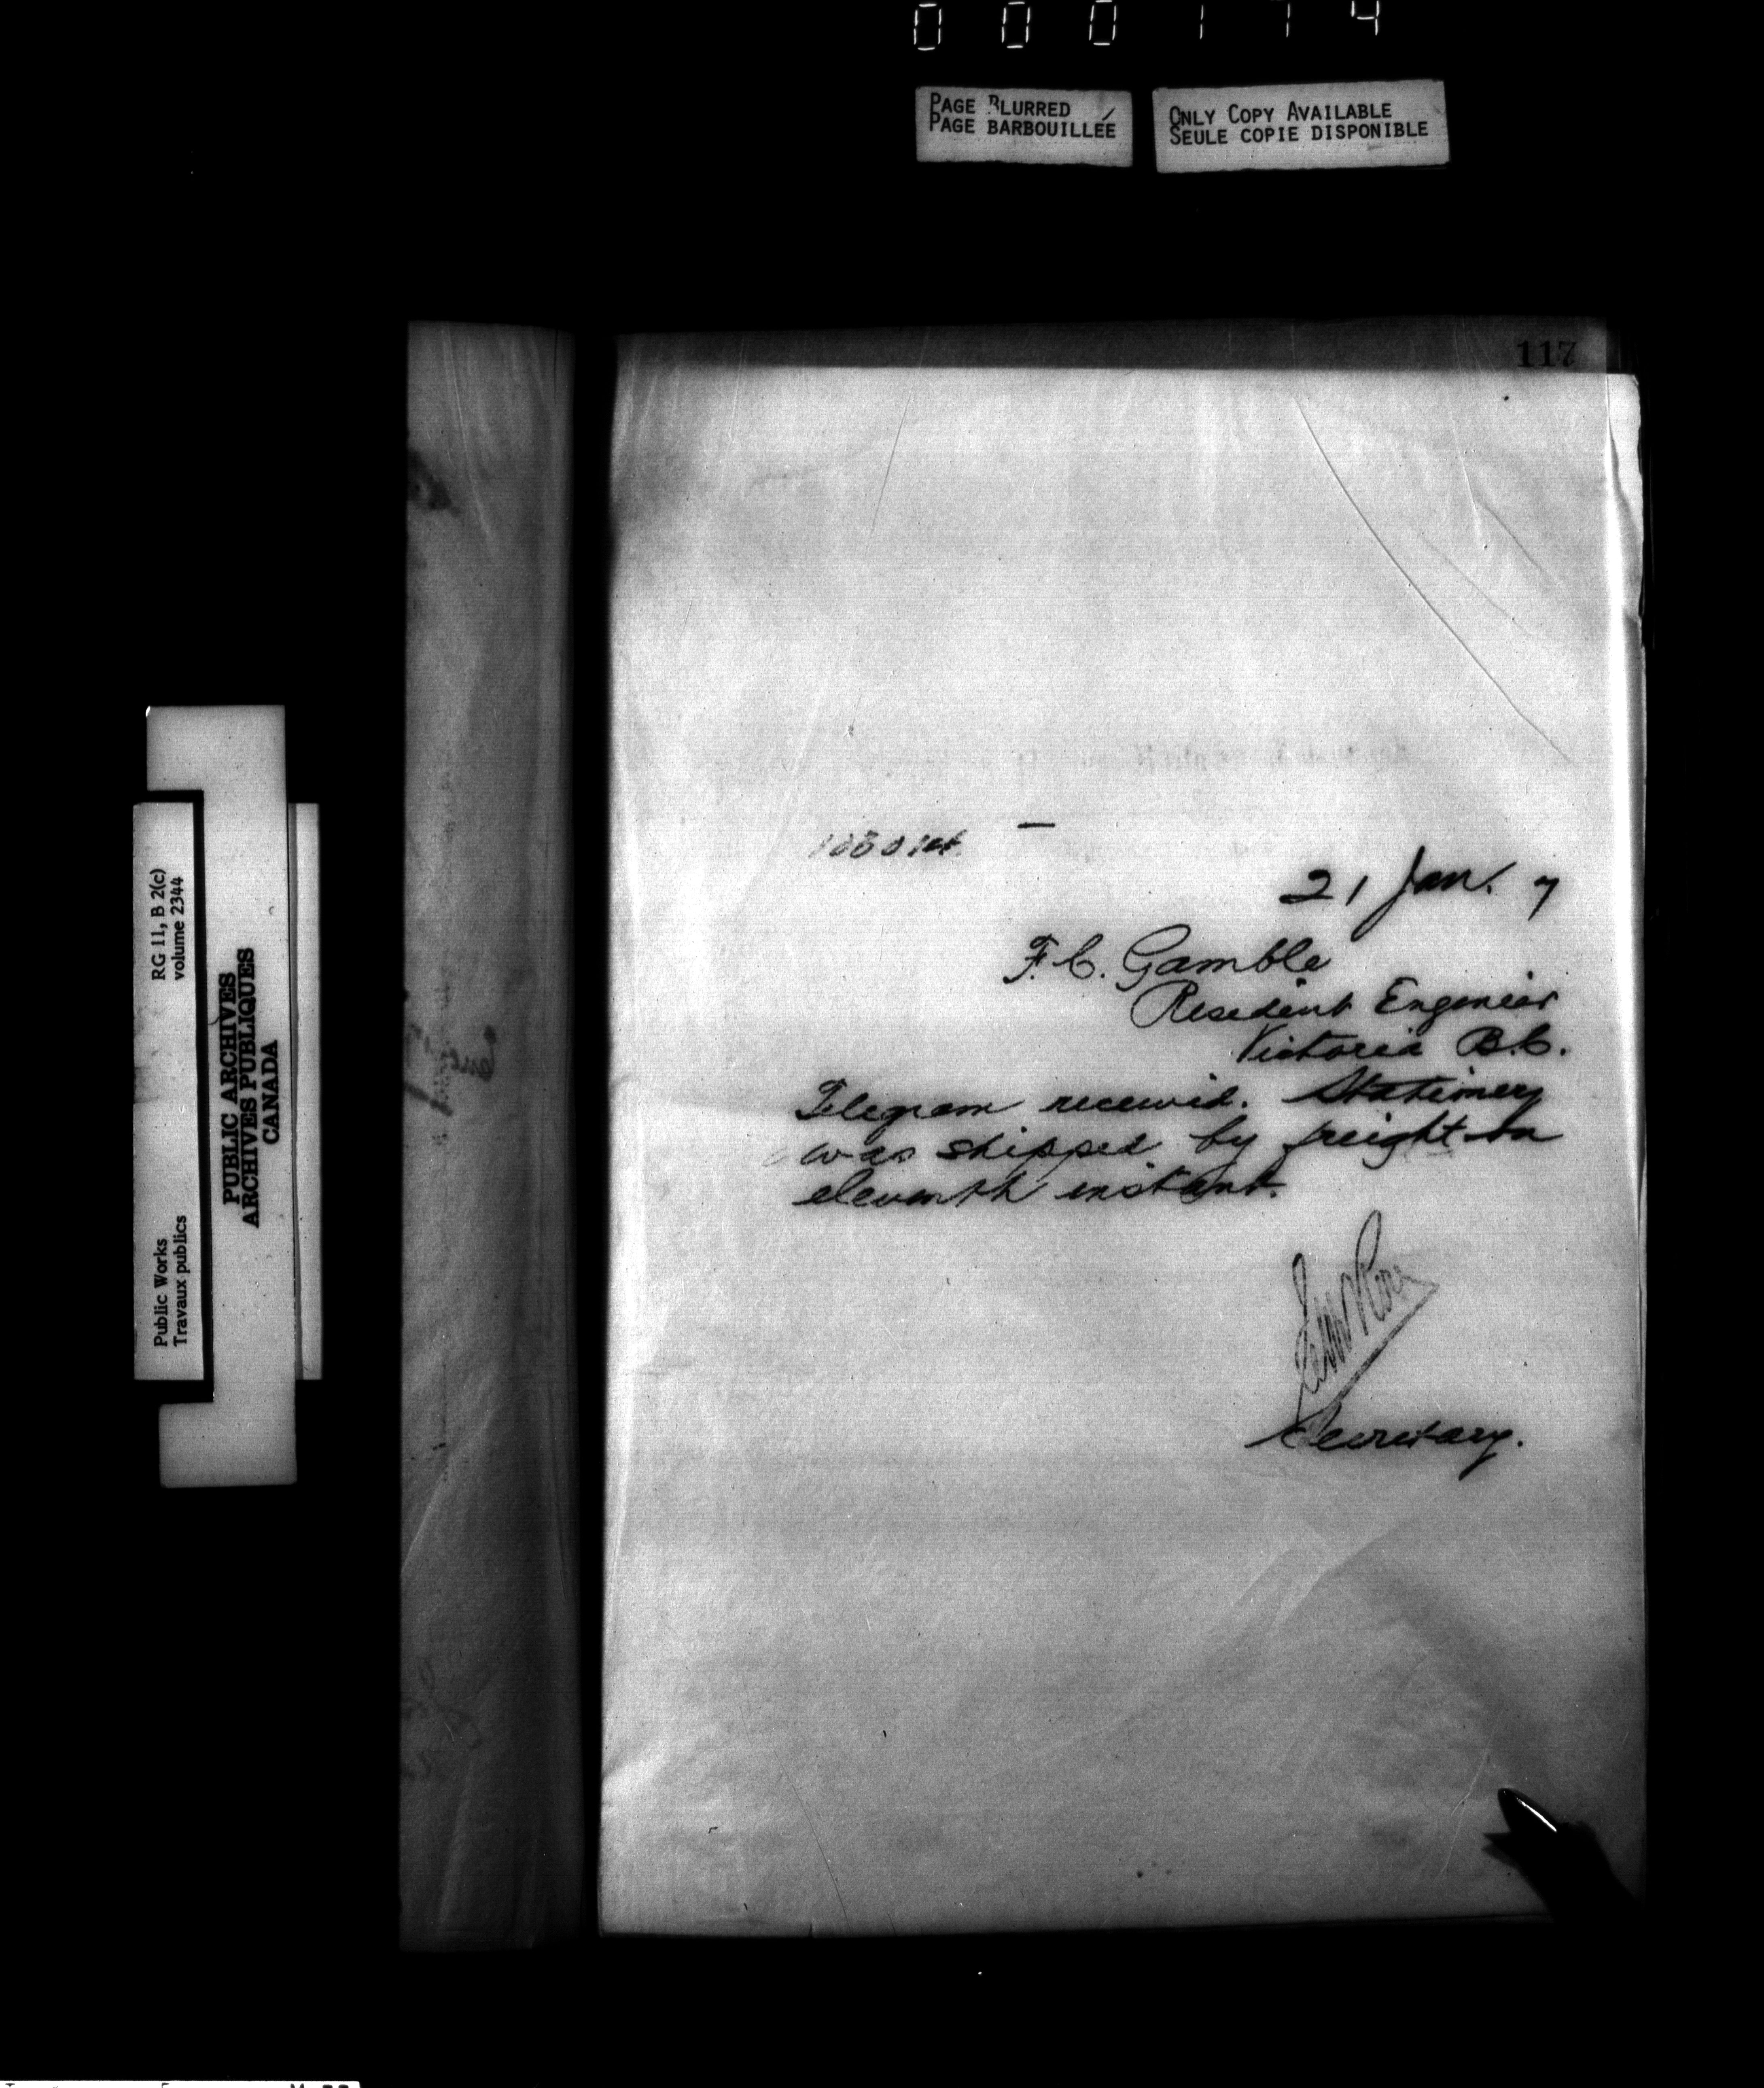 000174
PAGE BLURRED
PAGE BARBOUILLÉE
ONLY COPY AVAILABLE
SEULE COPIE DISPONIBLE
117
21 Jan. 7
F.C. Gamble
Resident Engineer
Victoria B.C.
Telegram received. Stationery
was shipped by freight on
eleventh instant.
Secretary.
RG 11, B 2(c)
volume 2344
Public Works
Travaux publics
PUBLIC ARCHIVES
ARCHIVES PUBLIQUES
CANADA